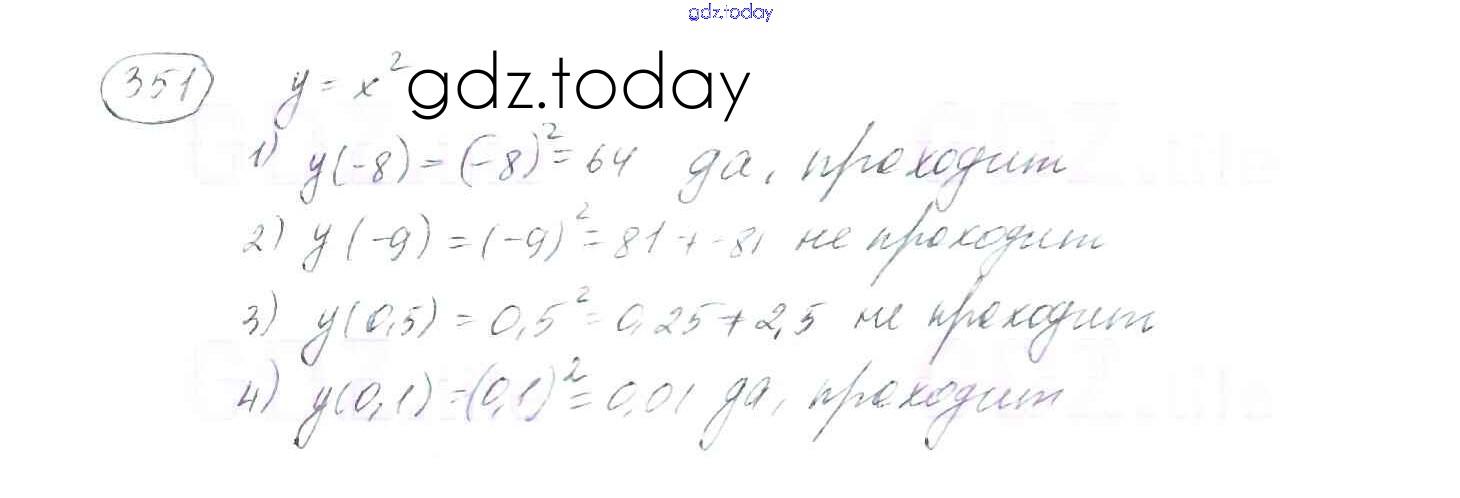 gdz.today
351 y = x² gdz.today
1) y(-8) = (-8)² = 64 да, проходит
2) y(-9) = (-9)² = 81 ≠ -81 не проходит
3) y(0,5) = 0,5² = 0,25 ≠ 2,5 не проходит
4) y(0,1) = (0,1)² = 0,01 да, проходит